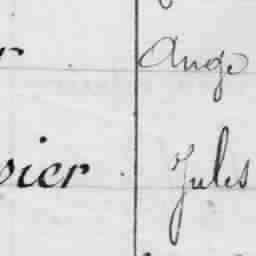 r Ange
sier Jules